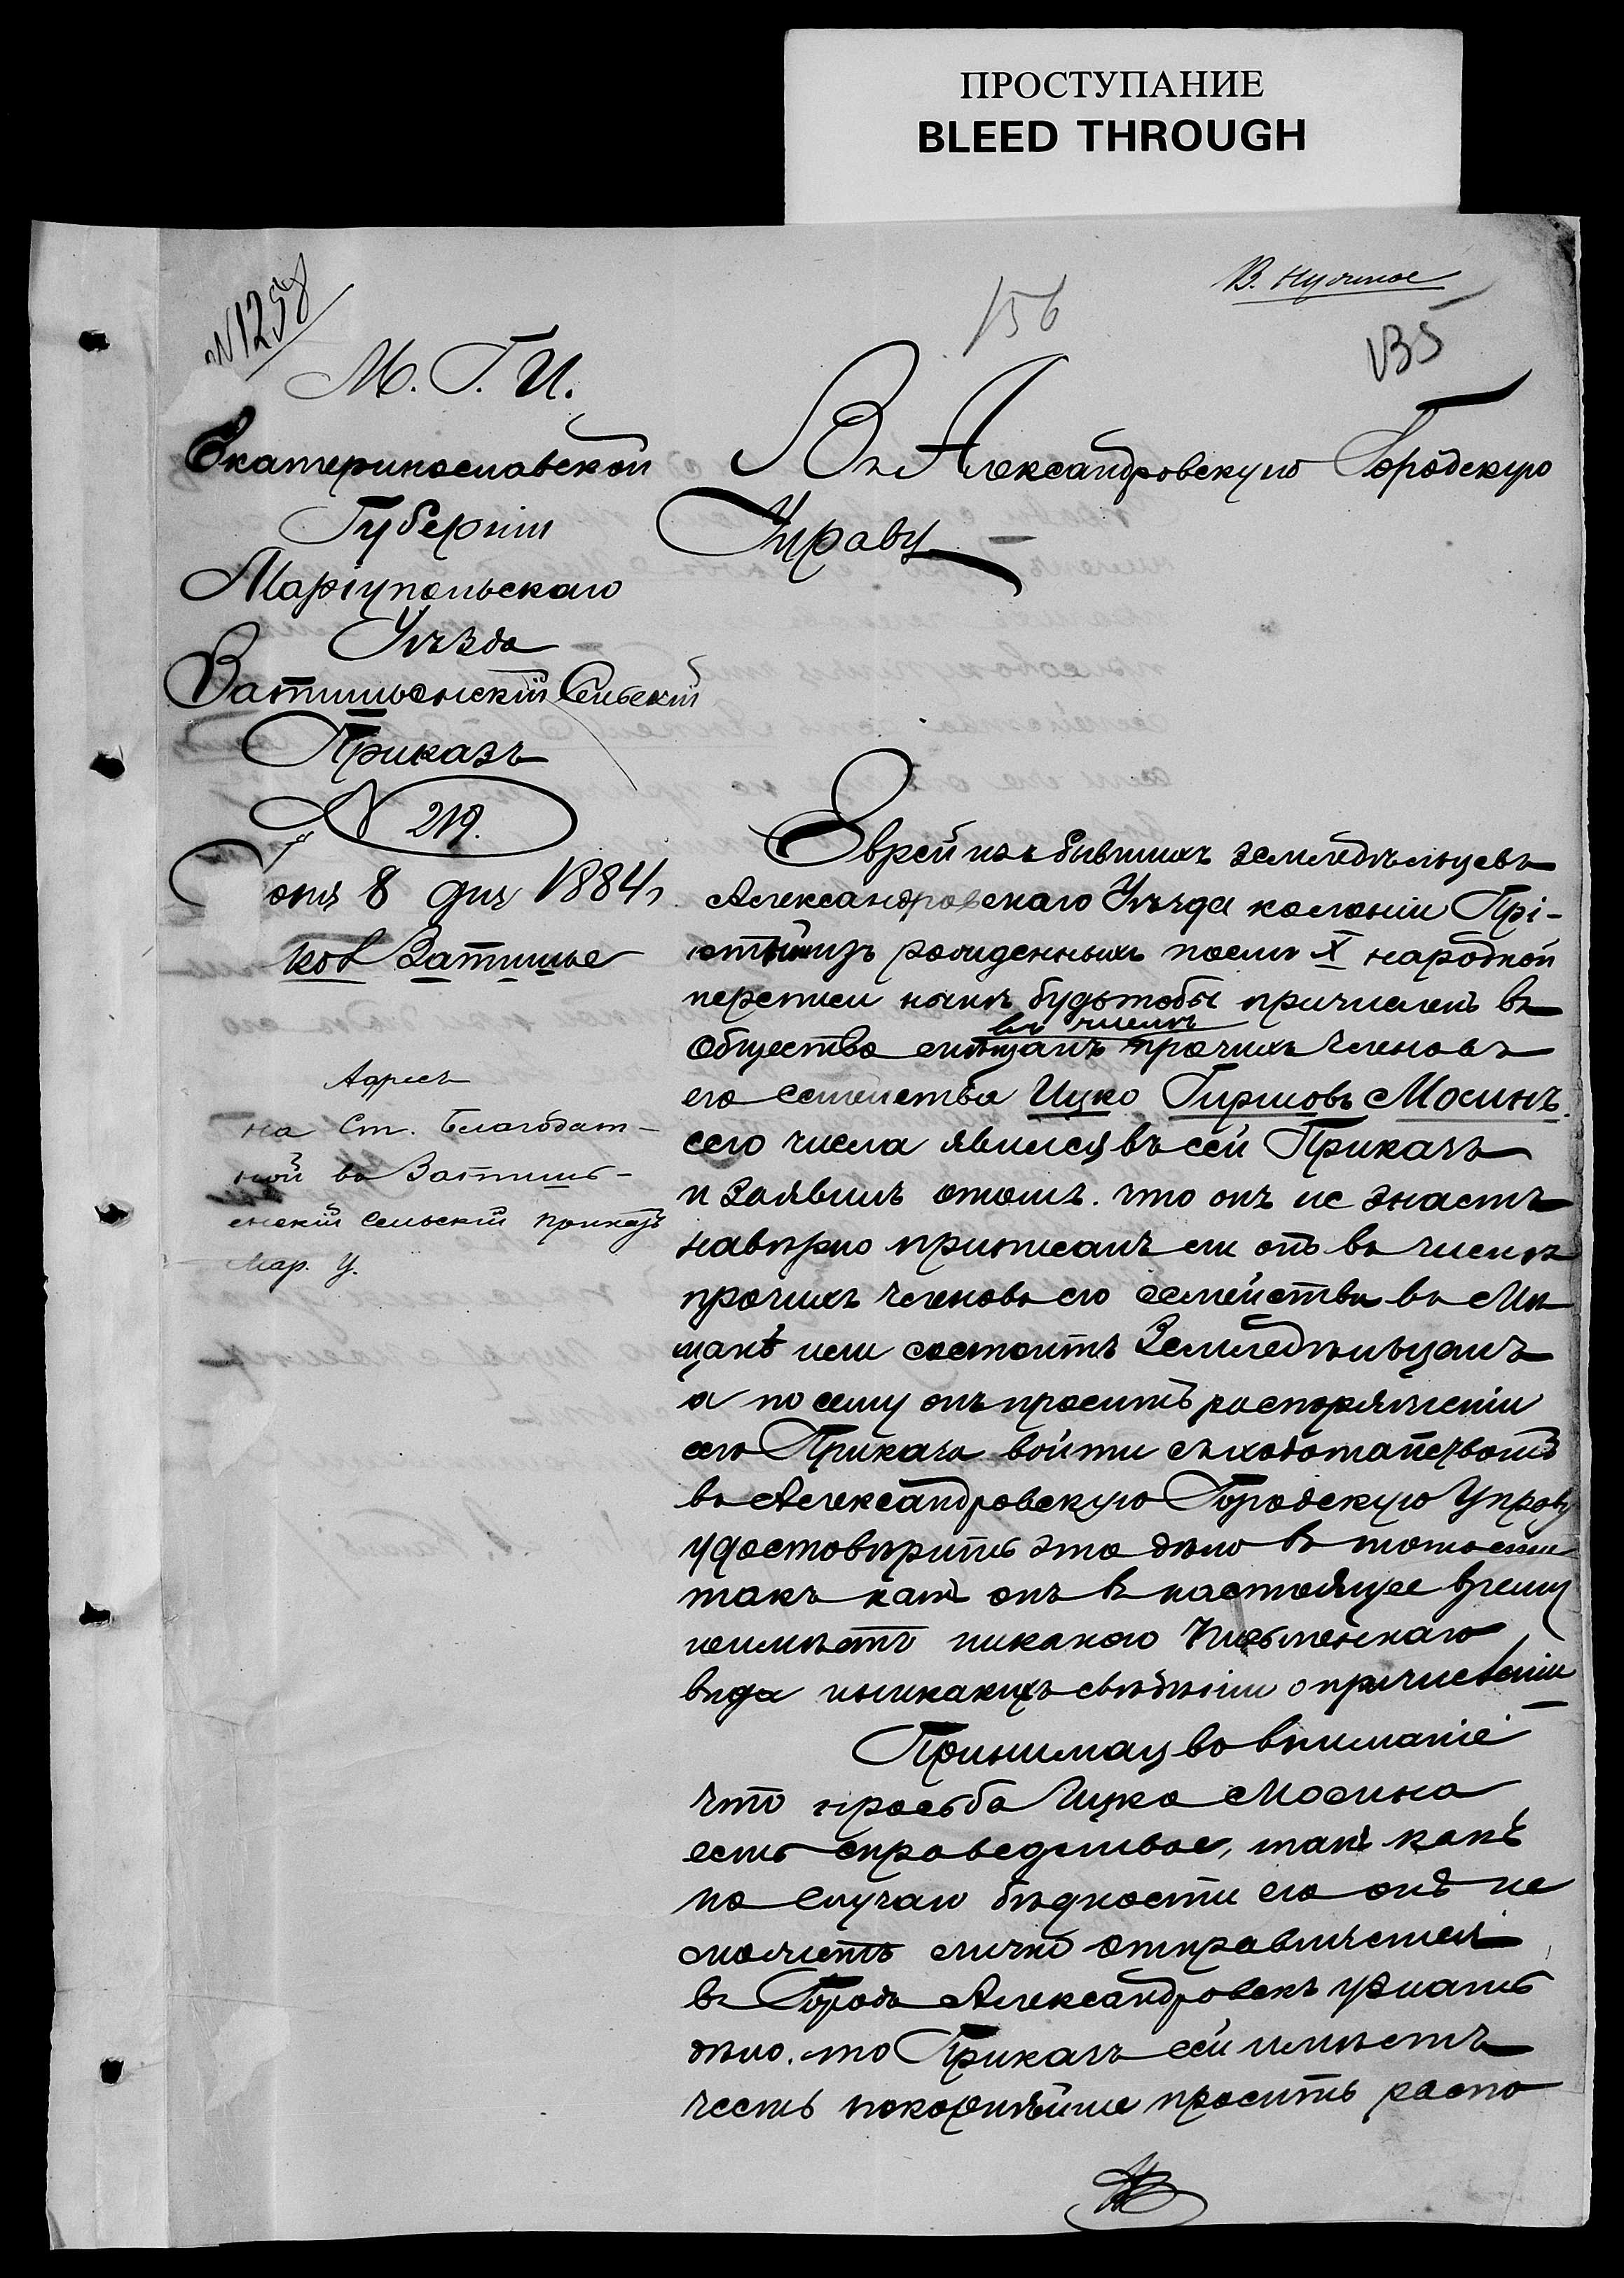 ПРОСТУПАНИЕ
BLEED THROUGH
№ 1258
156
135
М. Г. И.
Екатеринославской
Губерніи
Маріупольскаго
Уѣзда
Затишьенскій Сельскій
Приказъ
№ 219.
8 дня 1884 г.
кол Затишье
Адресъ
на Ст. Благодат-
ной въ Затишь-
енскій Сельскій приказъ
Мар. У.
Въ Александровскую Городскую
Управу
Еврей изъ бывшихъ земледѣльцевъ
Александровскаго Уѣзда колоніи Прі-
ютной изъ рожденныхъ послѣ X народной
переписи нынѣ будьтобы причисленъ въ
въ числѣ
Общество мѣщанъ прочихъ членовъ
его Семейства Ицко Гиршовъ Мосинъ.
сего числа явился въ сей Приказъ
и заявилъ отомъ. что онъ не знаетъ
навѣрно приписанъ ли онъ въ числѣ
прочихъ членовъ его семейства въ Мѣ
щанѣ или состоитъ Земледѣльцамъ
а по сему онъ проситъ распоряженіи
сего Приказа войти съ ходотайствомъ
въ Александровскую Городскую Управу
удостовѣрить это дѣло въ точности
такъ какъ онъ въ настоящее время
неимѣетъ никакого Письменнаго
вида иникакихъ свѣдѣніи о причисленіи
Принимая во вниманіе
что просьба Ицка Мосина
есть справедливое, такъ какъ
по Случаю бѣдности его онъ не
можетъ лично отправлятся
въ Городъ Александровскъ узнать
дѣло. то Приказъ сей имѣетъ
честь покорнѣйше просить распо